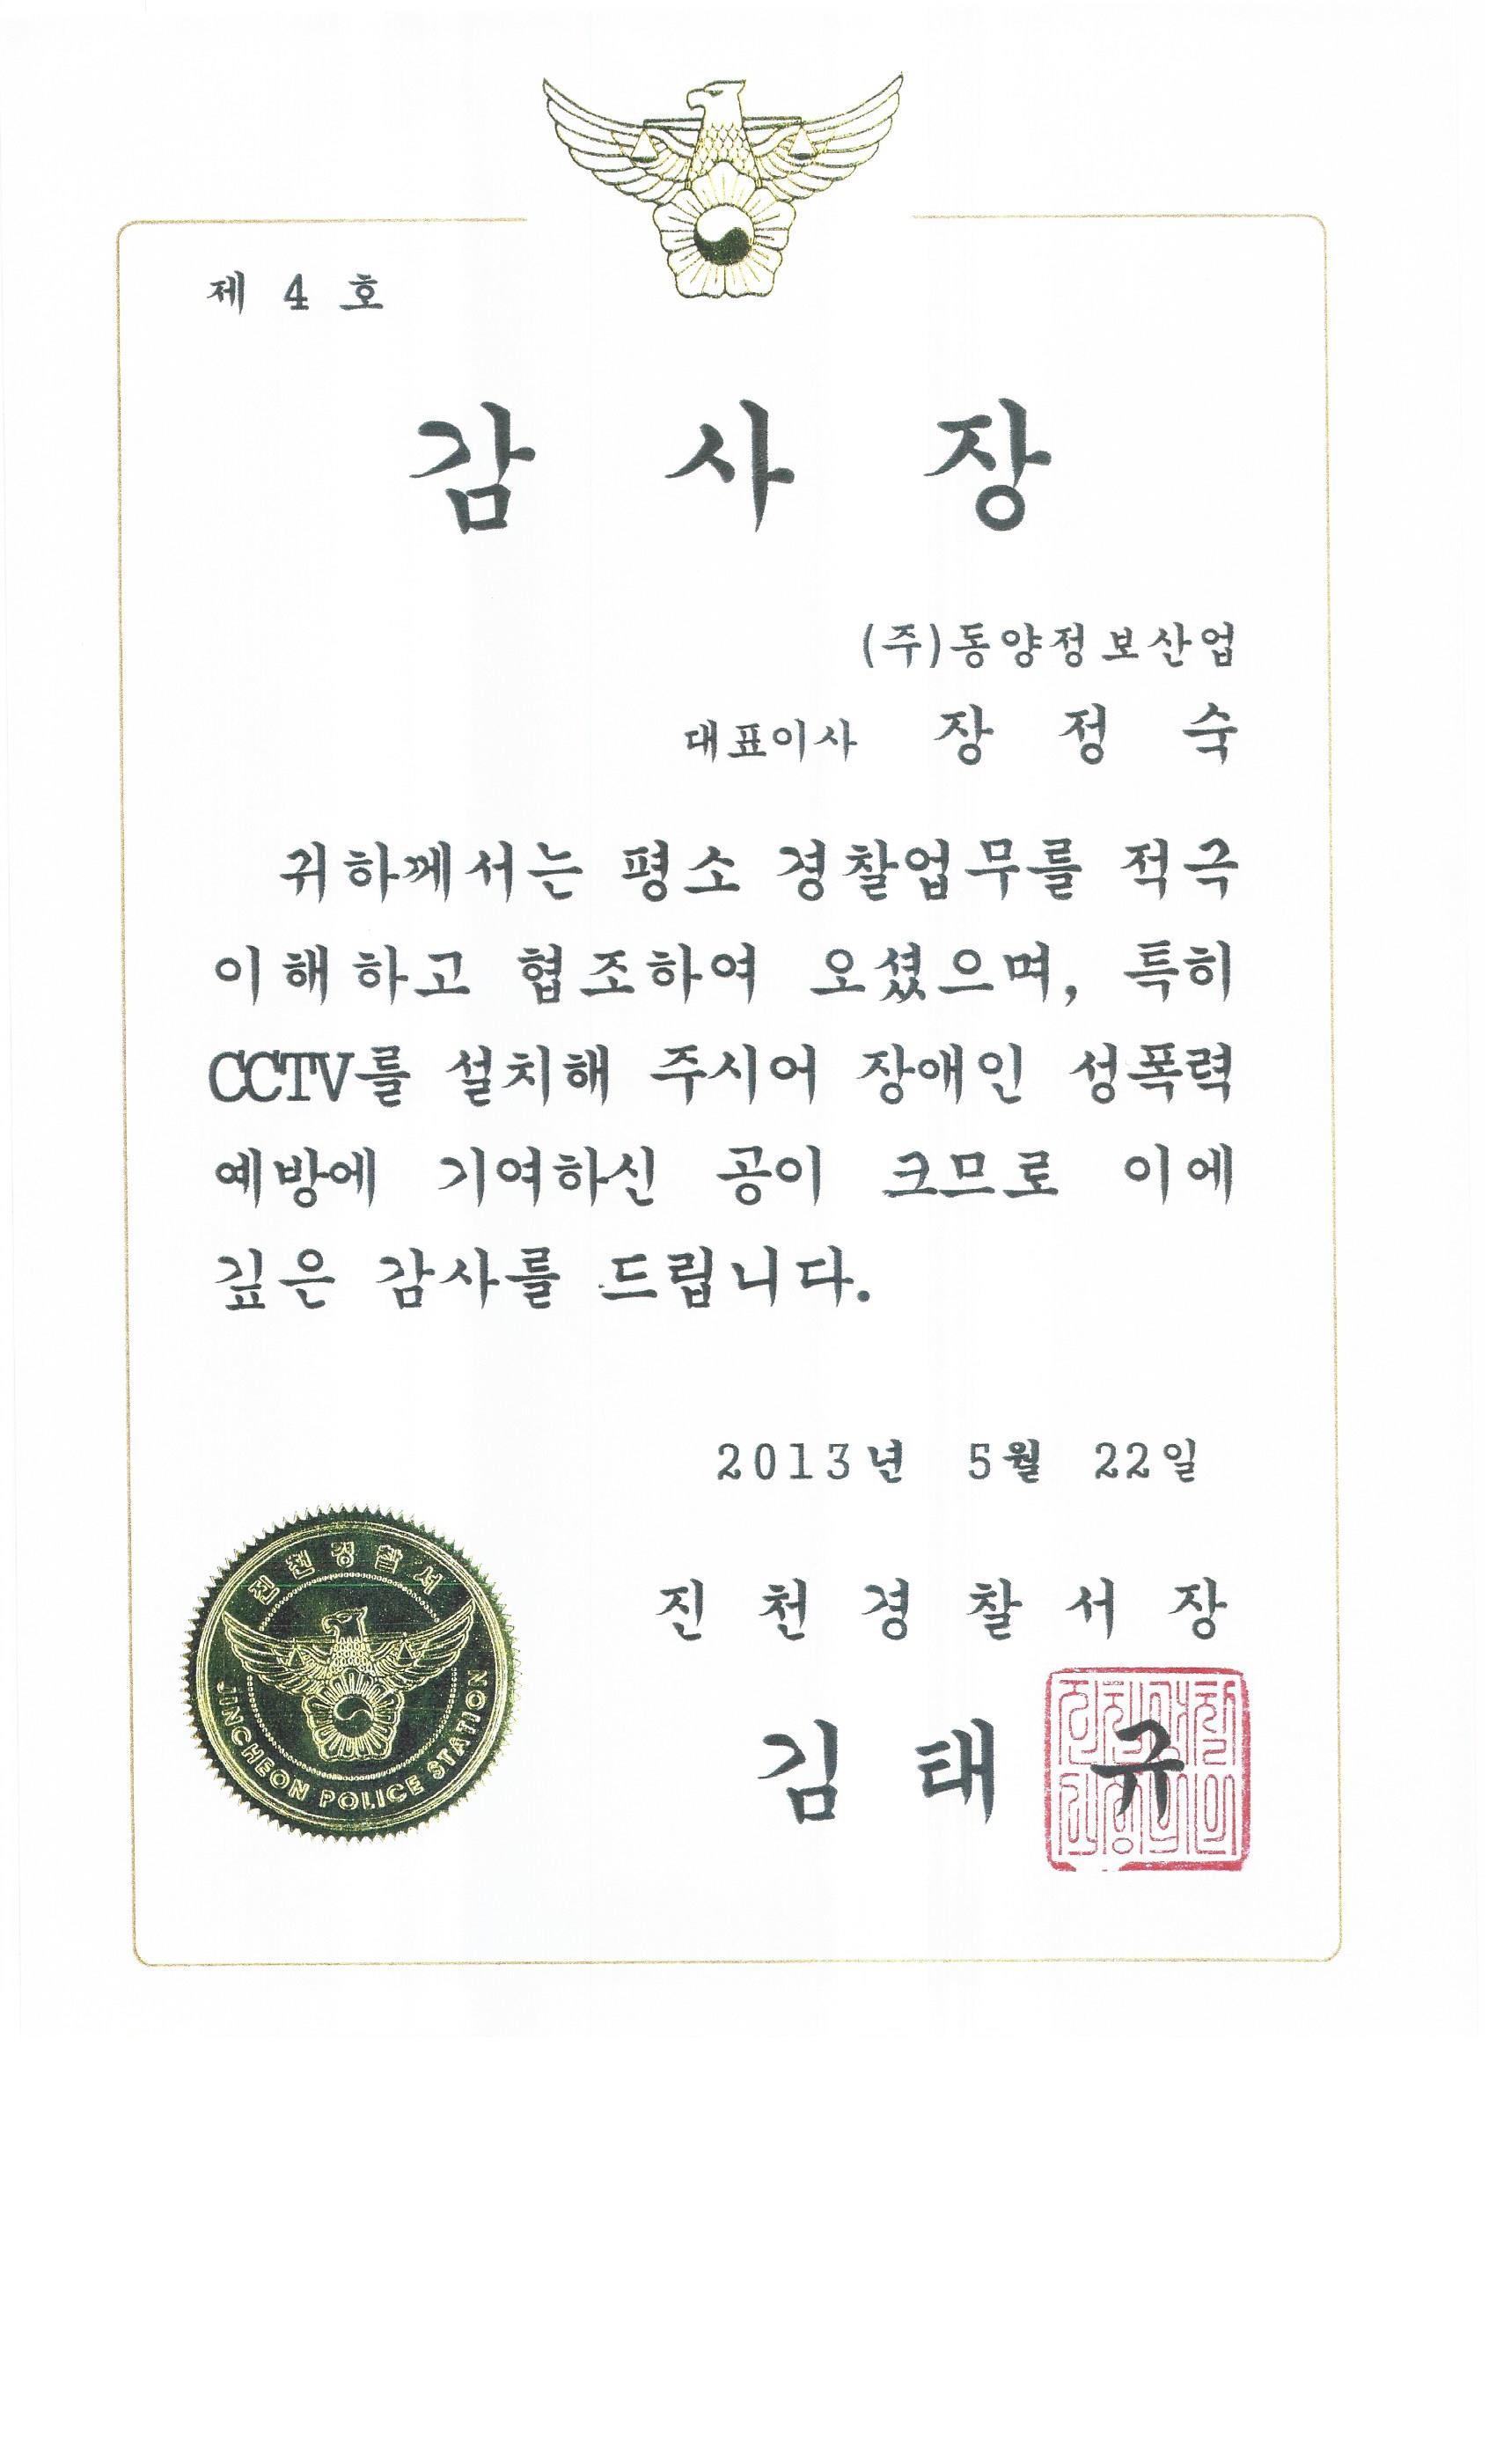 제 4 호
감 사 장
(주)동양정보산업
대표이사 장 정 숙
귀하께서는 평소 경찰업무를 적극
이해하고 협조하여 오셨으며, 특히
CCTV를 설치해 주시어 장애인 성폭력
예방에 기여하신 공이 크므로 이에
깊은 감사를 드립니다.
2013년 5월 22일
진 천 경 찰 서 장
김 태 규
진천경찰서
JINCHEON POLICE STATION